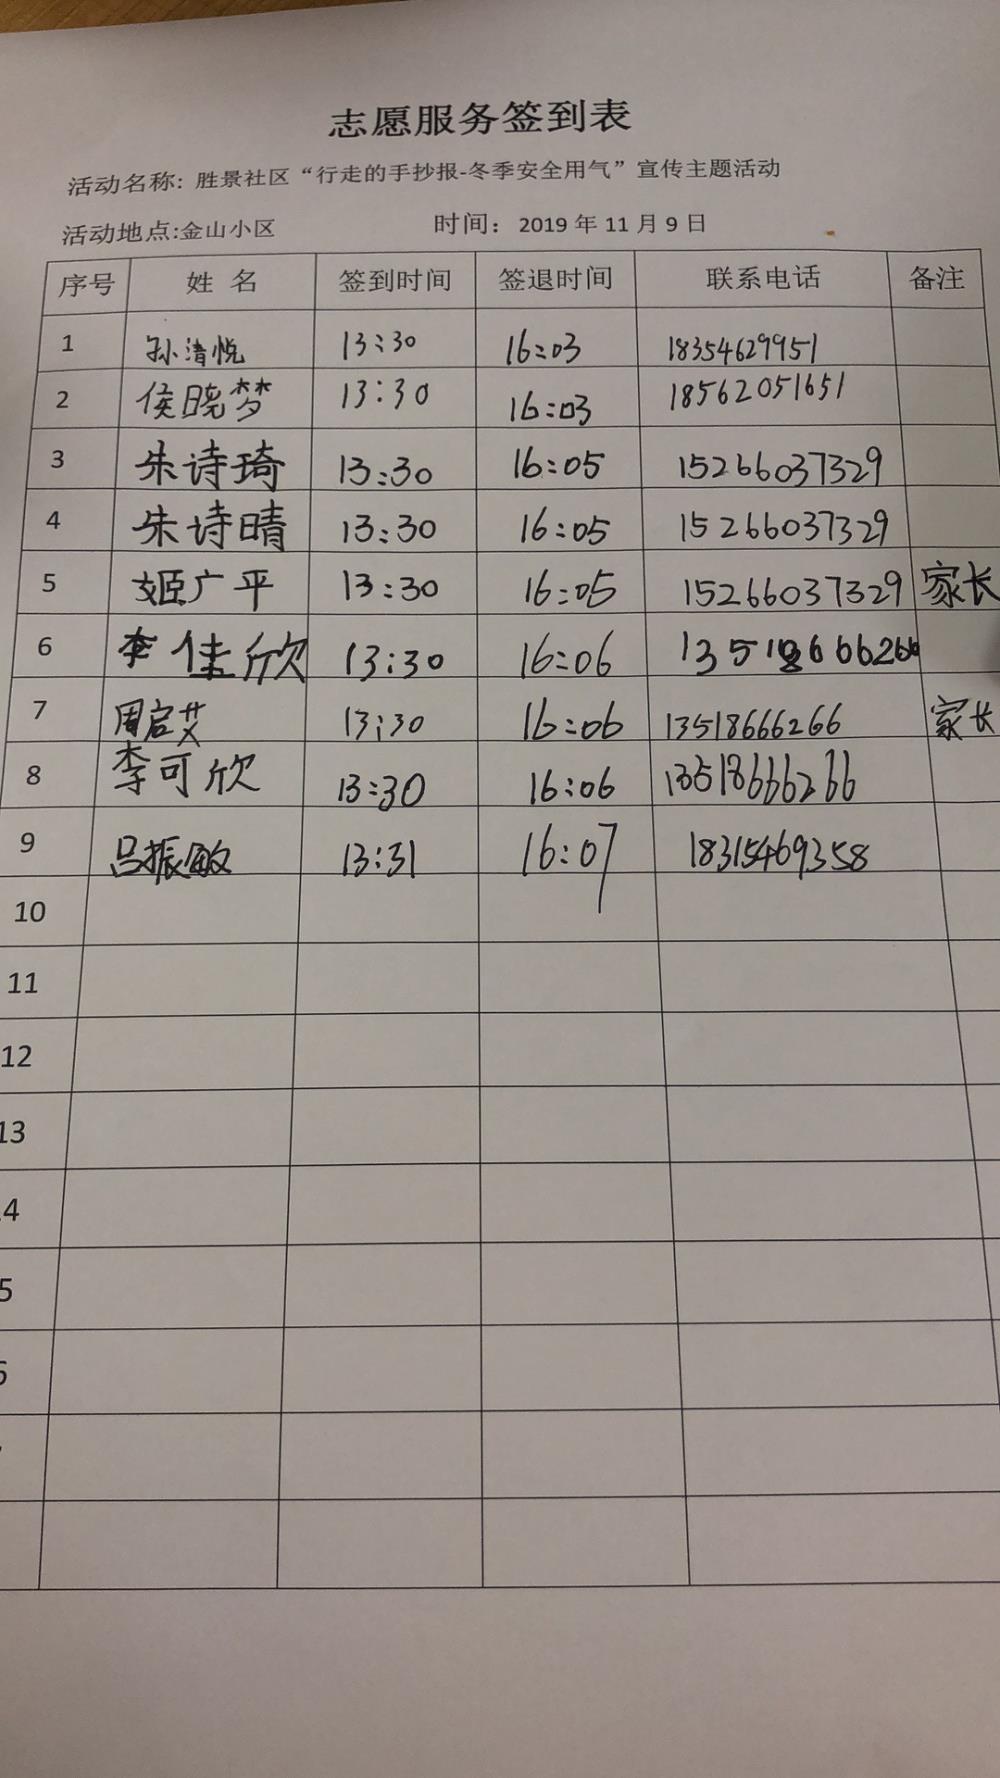 志愿服务签到表
活动名称: 胜景社区“行走的手抄报-冬季安全用气”宣传主题活动
活动地点:金山小区 时间: 2019 年 11 月 9 日
序号 姓 名 签到时间 签退时间 联系电话 备注
1 孙清悦 13:30 16:03 18354629951
2 侯晓梦 13:30 16:03 18562051651
3 朱诗琦 13:30 16:05 15266037329
4 朱诗晴 13:30 16:05 15266037329
5 姬广平 13:30 16:05 15266037329 家长
6 李佳欣 13:30 16:06 13518666266
7 周启艾 13:30 16:06 13518666266 家长
8 李可欣 13:30 16:06 13518666266
9 吕振敏 13:31 16:07 18315469358
10
11
12
13
4
5
6